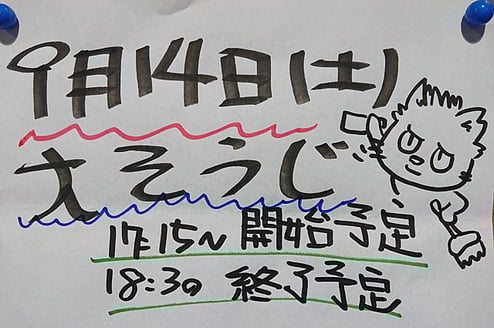 9月14日(土)
大そうじ
17:15~ 開始予定
18:30 終了予定